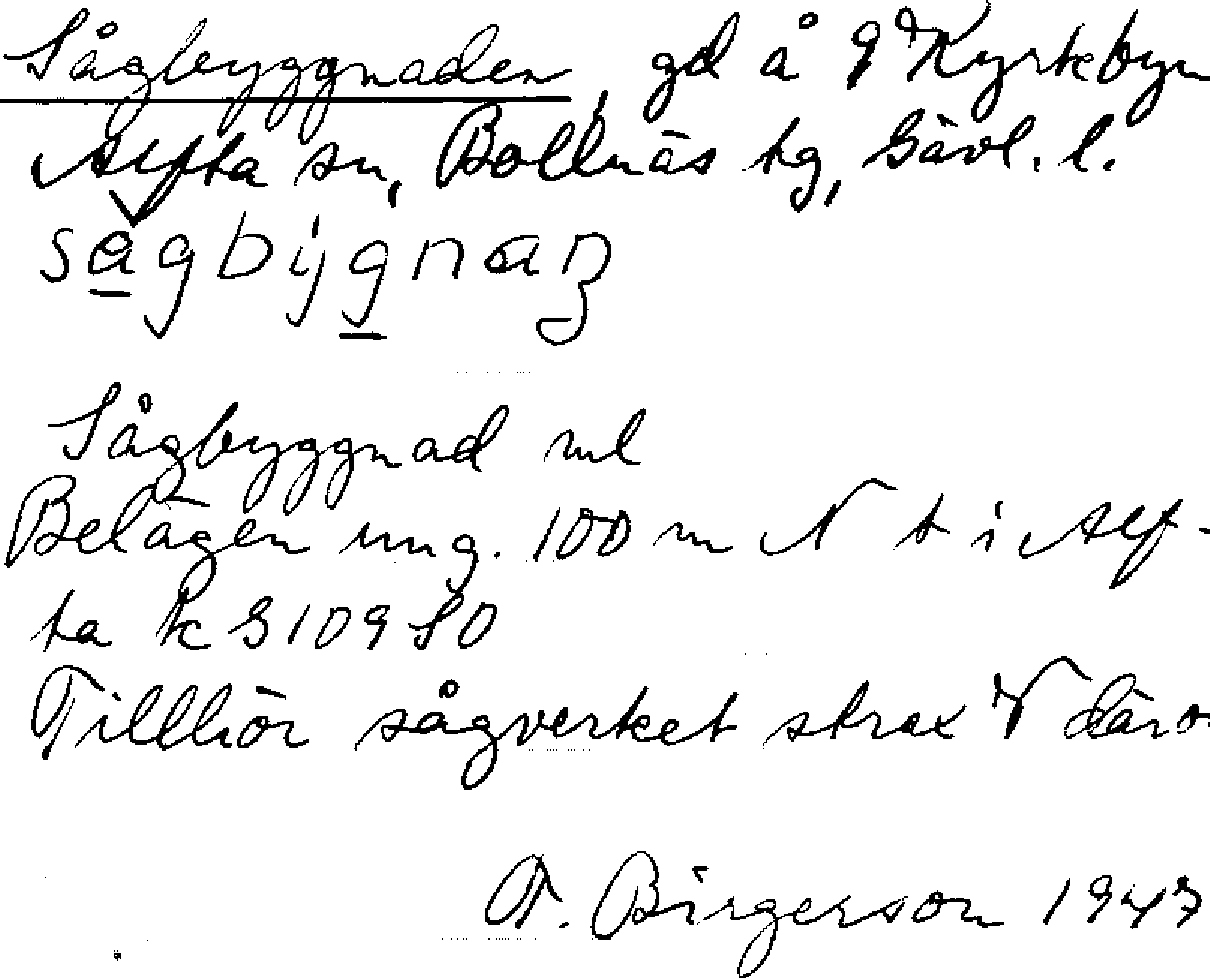 Sågbyggnaden, gd å 9 Kyrkbyn
Alfta sn, Bollnäs tg, Gävl. l.
sågbygnaɳ
Sågbyggnad ml
Belägen ung. 100 m N t i Alf-
ta k G 109 SO
Tillhör sågverket strax V däro
T. Birgerson 1947